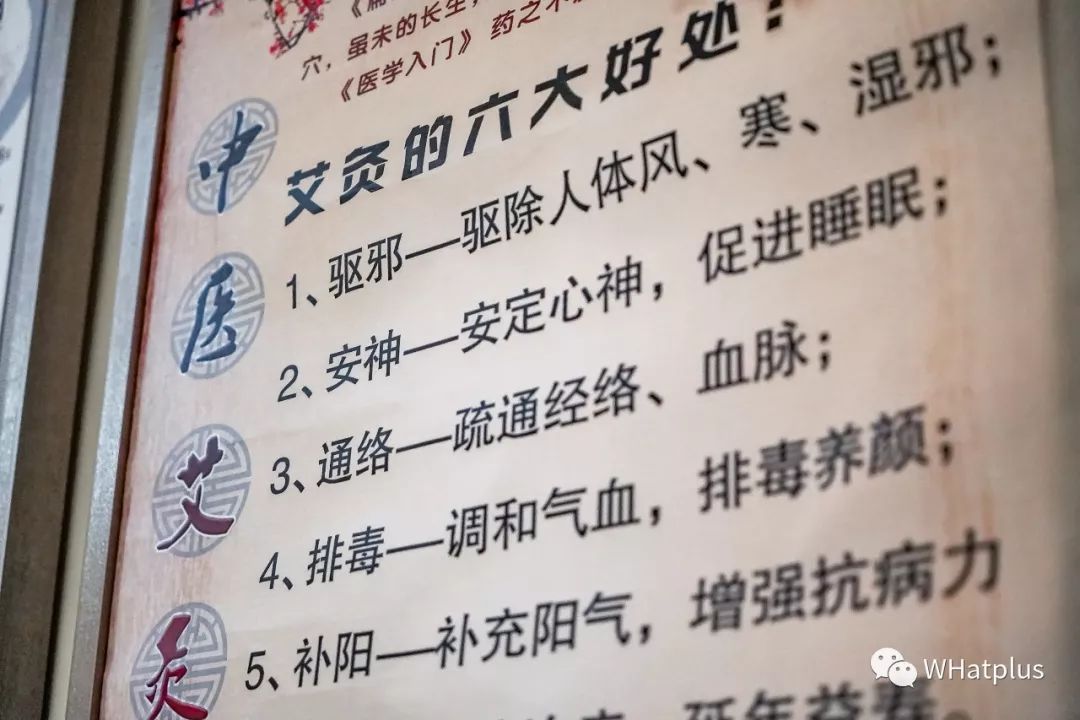 穴，虽未的长生，
《医学入门》 药之不
艾灸的六大好处！
1、驱邪—驱除人体风、寒、湿邪；
2、安神—安定心神，促进睡眠；
3、通络—疏通经络、血脉；
4、排毒—调和气血，排毒养颜；
5、补阳—补充阳气，增强抗病力
延年益寿。
中
医
艾
灸
WHatplus